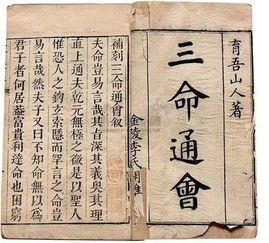 育吾山人著
三命通會
金陵李氏
補刻三命通會叙
夫命豈易言哉其旨深其義奥其理
直上通夫乾元無極之後是以聖人
惟恐人之鈎玄索隱而罕言之命豈
易言哉然夫子又曰不知命無以爲
君子者何居蓋富貴利達命也困窮